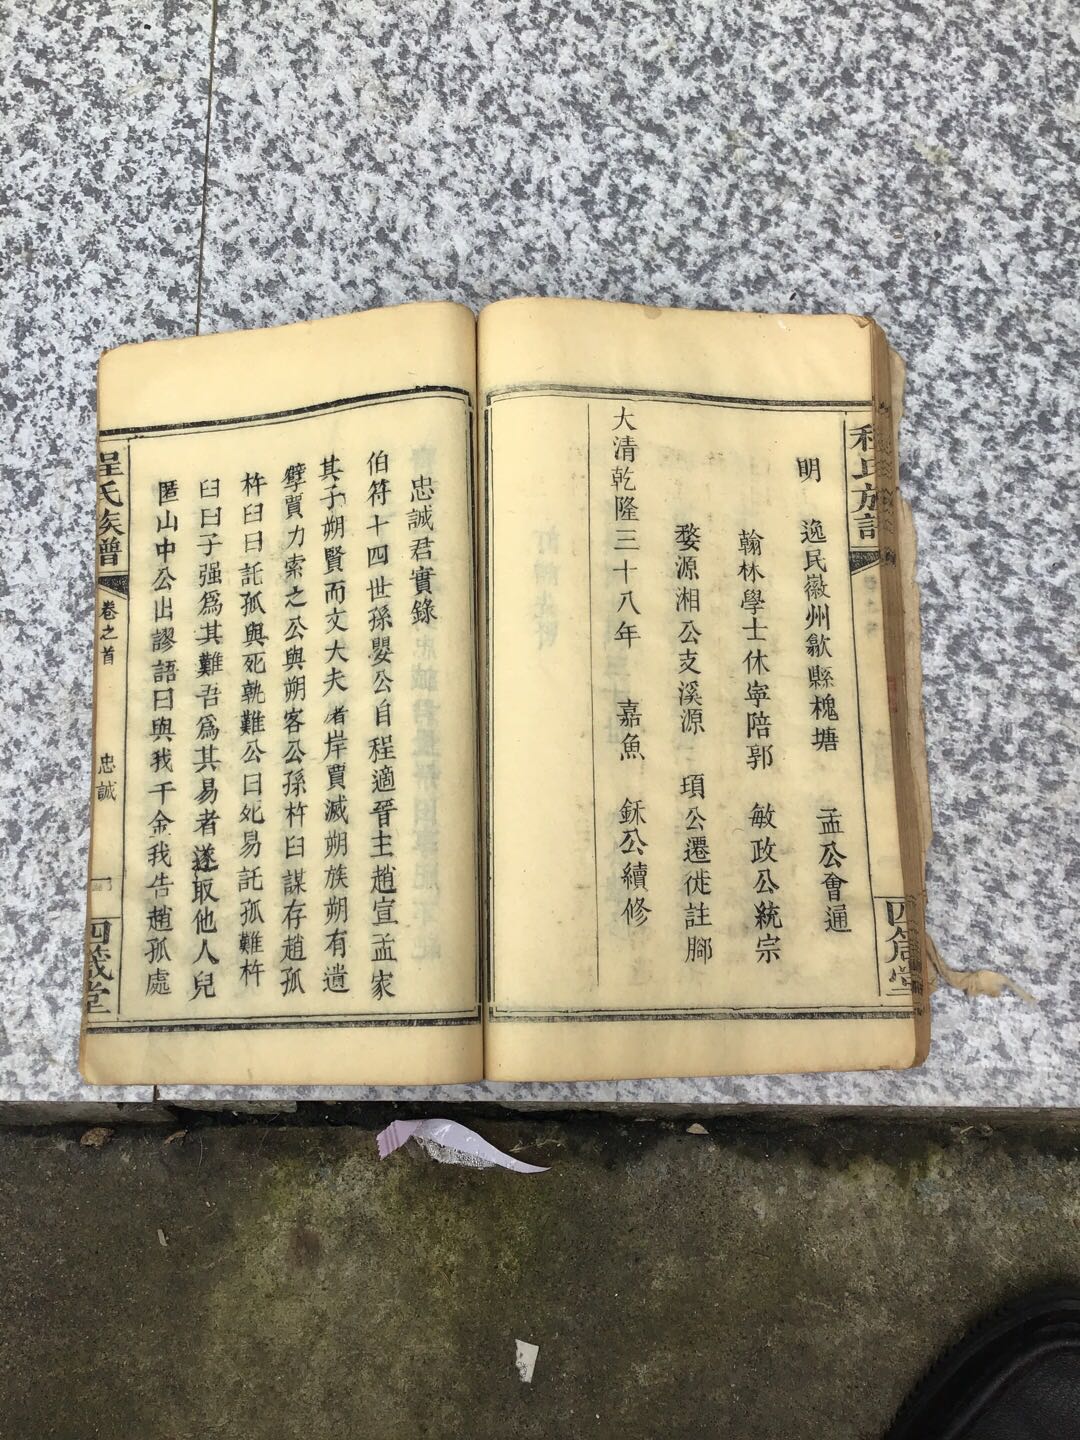 程氏族譜
四箴堂
明 逸民徽州歙縣槐塘 孟公會通
翰林學士休寧陪郭 敏政公統宗
婺源湘公支溪源 項公遷徙註腳
大清乾隆三十八年 嘉魚 鉌公續修
忠誠君實錄
伯符十四世孫嬰公自程適晉主趙宣孟家
其子朔賢而文大夫者岸賈滅朔族朔有遺
孽賈力索之公與朔客公孫杵臼謀存趙孤
杵臼曰託孤與死孰難公曰死易託孤難杵
臼曰子强爲其難吾爲其易者遂取他人兒
匿山中公出謬語曰與我千金我告趙孤處
程氏族譜
卷之首
忠誠
一
四箴堂